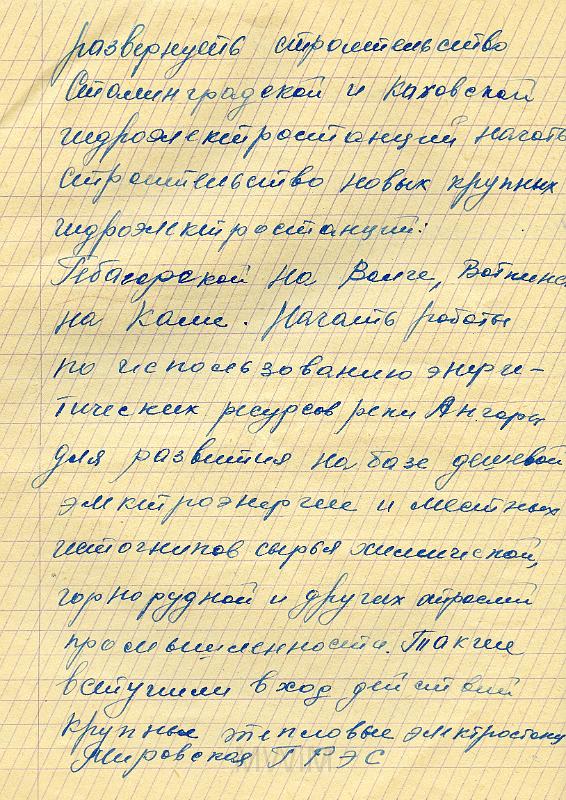 развернуть строительство
Сталинградской и Каховской
гидроэлектростанций начать
строительство новых крупных
гидроэлектростанций:
на Волге, Воткинск
на Каме. Начать работы
по использованию энерге-
тических ресурсов реки Ангары
для развития на базе дешевой
электроэнергии и местных
источников сырья химической,
горнорудной и других отраслей
промышленности. Также
вступили в ход действий
крупные тепловые электростанц
Мировская ГРЭС